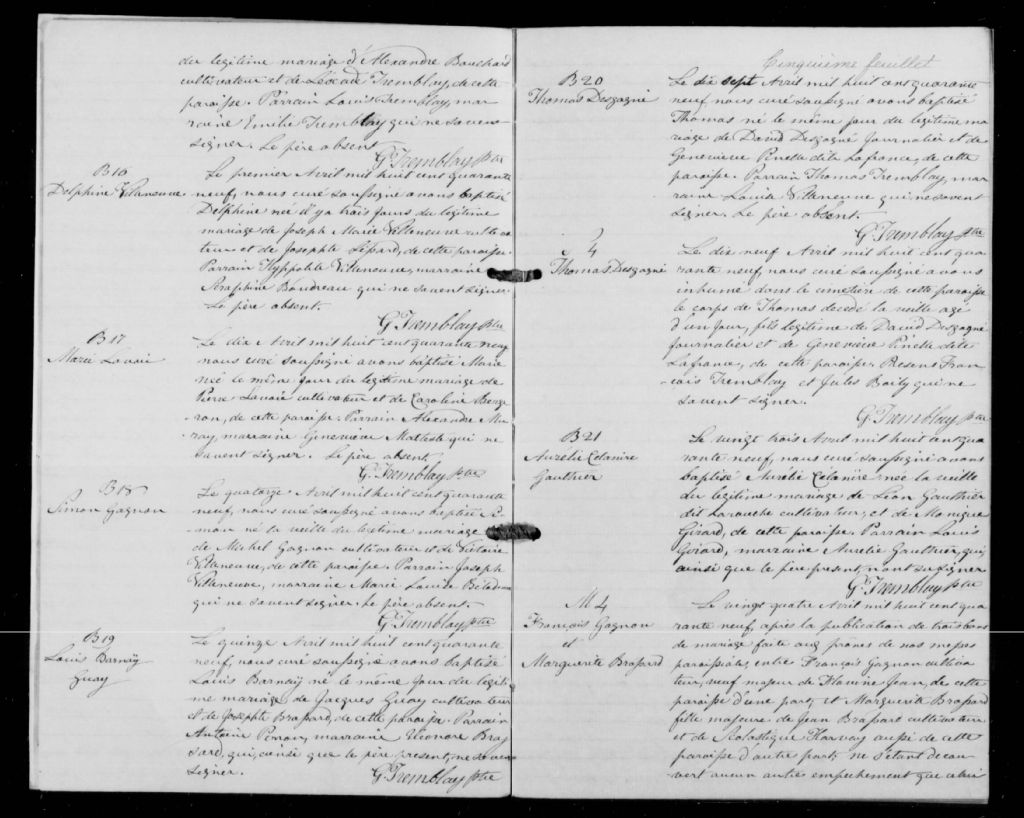 du legitime mariage d'Alexandre Bouchard
cultivateur et de Léocadie Tremblay, de cette
paroisse. Parrain Louis Tremblay, mar
raine Emilie Tremblay qui ne savent
signer. Le père absent.
G. Tremblay Ptre
B 16
Delphine Villeneuve
Le premier Avril mil huit cent quarante
neuf, nous curé soussigné avons baptisé
Delphine née il y a trois jours du légitime
mariage de Joseph Marie Villeneuve cultiva
teur et de Josephte Lépard, de cette paroisse.
Parrain Hyppolite Villeneuve, marraine
Séraphine Boudreau qui ne savent signer.
Le père absent.
G. Tremblay Ptre
B 17
Marie Lavoie
Le dix Avril mil huit cent quarante neuf
nous curé soussigné avons baptisé Marie
née le même jour du legitime mariage de
Pierre Lavoie cultivateur et de Caroline Berge
ron, de cette paroisse. Parrain Alexandre Mu
ray, marraine Geneviève Malteste qui ne
savent signer. Le père absent.
G. Tremblay Ptre
B 18
Simon Gagnon
Le quatorze Avril mil huit cent quarante
neuf, nous curé soussigné avons baptisé Si
mon né la veille du legitime mariage
de Michel Gagnon cultivateur et de Victoire
Villeneuve, de cette paroisse. Parrain Joseph
Villeneuve, marraine Marie Louise
qui ne savent signer. Le père absent.
G. Tremblay Ptre
B 19
Louis Barnaÿ
Guay
Le quinze Avril mil huit cent quarante
neuf, nous curé soussigné avons baptisé
Louis Barnaÿ né le même jour du legiti
me mariage de Jacques Guay cultivateur
et de Josephte Brassard, de cette paroisse. Parrain
Antoine Perron, marraine Léonore Bras
sard, qui, ainsi que le père présent, ne savent
signer.
G. Tremblay Ptre
Cinquième feuillet
B 20
Thomas Desgagné
Le dix sept Avril mil huit cent quarante
neuf nous curé soussigné avons baptisé
Thomas né le même jour du legitime ma
riage de David Desgagné Journalier et de
Genevieve Pinelle dite Lafrance, de cette
paroisse. Parrain Thomas Tremblay, mar
raine Louise Villeneuve qui ne savent
signer. Le père absent.
G. Tremblay Ptre
S 4
Thomas Desgagné
Le dix neuf Avril mil huit cent qua
rante neuf, nous curé soussigné avons
inhumé dans le cimetière de cette paroisse
le corps de Thomas decedé la veille agé
d'un jour, fils legitime de David Desgagné
journalier et de Geneviève Pinelle dite
Lafrance, de cette paroisse. Présens Fran
cois Tremblay et Jules Boily qui ne
savent signer.
G. Tremblay Ptre
B 21
Aurélie Célanire
Gauthier
Le vingt trois Avril mil huit cent qua
rante neuf, nous curé soussigné avons
baptisé Aurélie Célanire née la veille
du legitime mariage de Léon Gauthier
dit Larouche cultivateur, et de Monique
Girard, de cette paroisse. Parrain Louis
Girard, marraine Aurelie Gauthier, qui,
ainsi que le père présent, n'ont su signer
G. Tremblay Ptre
M 4
François Gagnon
et
Marguerite Brassard
Le vingt quatre Avril mil huit cent qua
rante neuf, après la publication de trois bans
de mariage faite aux prônes de nos messes
paroissiales, entre François Gagnon cultiva
teur, veuf majeur de Flavine Jean, de cette
paroisse d'une part, et Marguerite Brassard
fille majeure de Jean Brassard cultivateur
et de Scolastique Harvay aussi de cette
paroisse d'autre part; ne s'étant decou
vert aucun autre empechement que celui